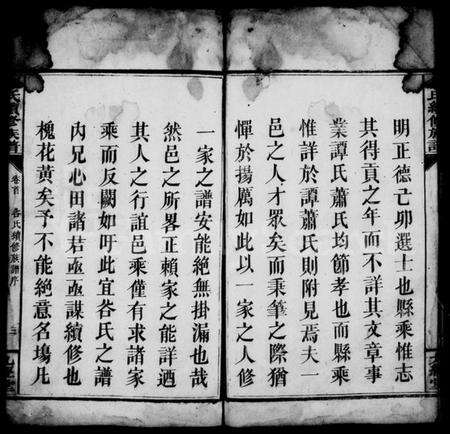 明正德己卯選士也縣乘惟志
其得貢之年而不詳其文章事
業譚氏蕭氏均節孝也而縣乘
惟詳於譚蕭氏則附見焉夫一
邑之人才眾矣而秉筆之際猶
憚於揚厲如此以一家之人修
一家之譜安能絕無掛漏也哉
然邑之所畧正賴家之能詳迺
其人之行誼邑乘僅有求諸家
乘而反闕如吁此宜昝氏之譜
內兄心田諸君亟亟謀續修也
槐花黃矣予不能絕意名場凡
氏續修族譜
卷首
昝氏續修族譜序